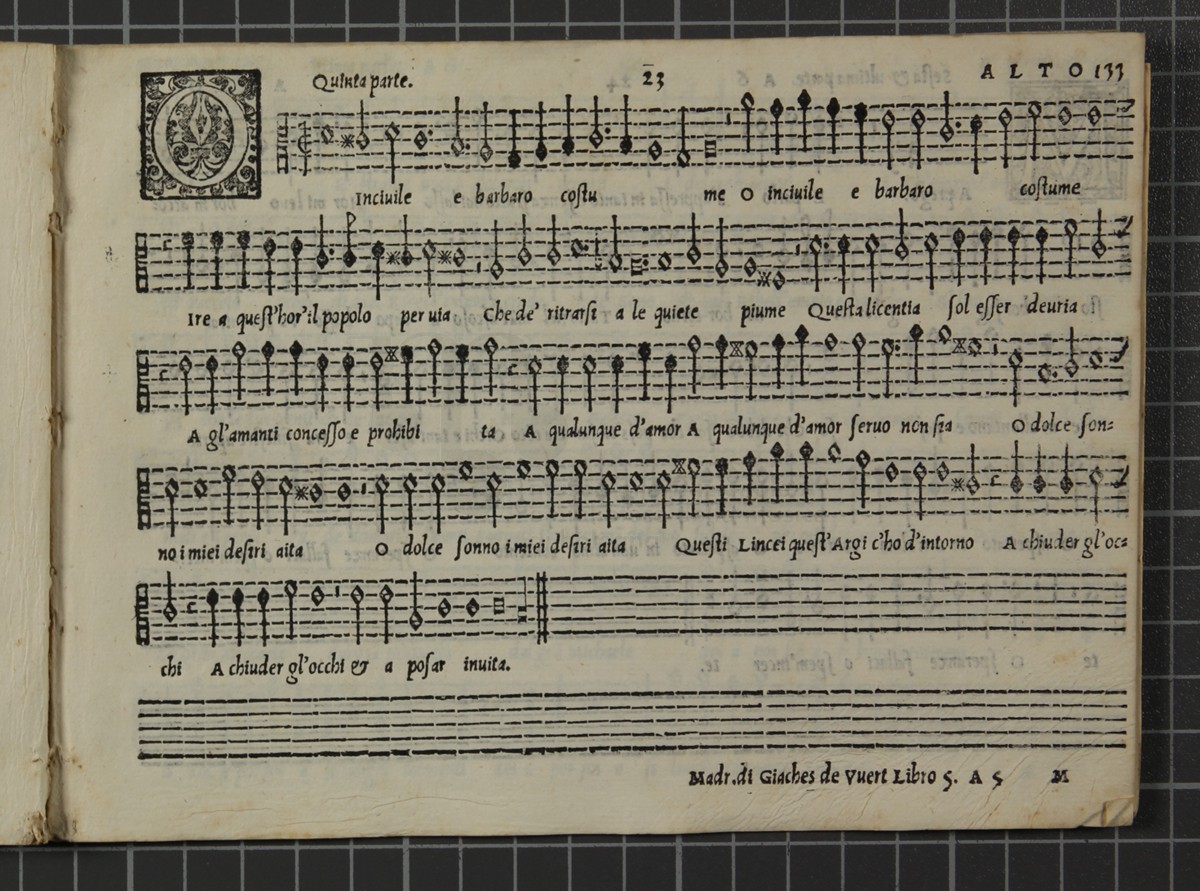 Quinta parte. 23 ALTO 133
O Inciuile e barbaro costu me O inciuile e barbaro costume
Ire a quest'hor'il popolo per uia Che de' ritrarsi a le quiete piume Questa licentia sol esser deuria
A gl'amanti concesso e prohibi ta A qualunque d'amor A qualunque d'amor seruo non sia O dolce son=
no i miei desiri aita O dolce sonno i miei desiri aita Questi Lincei quest'Argi c'ho d'intorno A chiuder gl'oc=
chi A chiuder gl'occhi & a posar inuita.
Madr. di Giaches de Vuert Libro 5. A 5 M